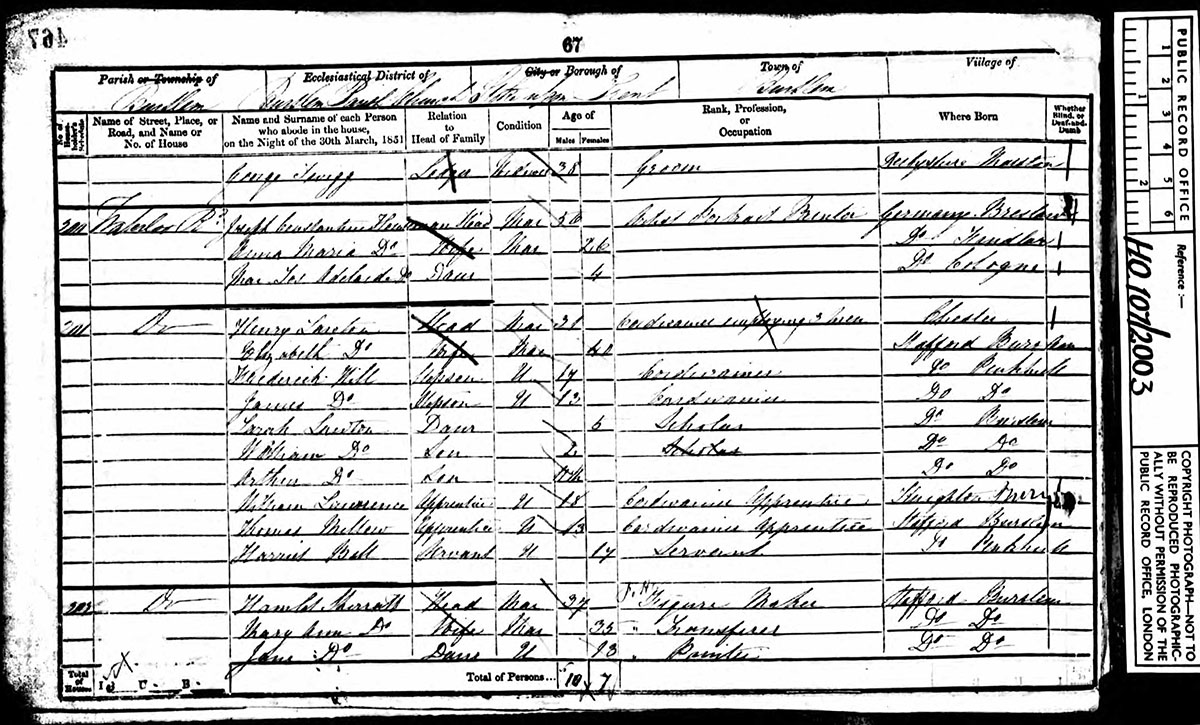 467
67
Parish or Township of Ecclesiastical District of City or Borough of Town of Village of
Burslem Burslem Stoke upon Trent Burslem
No. of House-holder's Schedule Name of Street, Place, or Road, and Name or No. of House Name and Surname of each Person who abode in the house, on the Night of the 30th March, 1851 Relation to Head of Family Condition Age of Males Females Rank, Profession, or Occupation Where Born Whether Blind, or Deaf-and-Dumb
George Twigg Lodger Widower 38 Groom Derbyshire
200 Waterloo Rd Joseph Constantine Head Mar 36 Artist Portrait Germany Breslau
Anna Maria Do Wife Mar 26 Do
Adelaide Do Daur 4 Do Cologne
201 Do Henry Lawton Head Mar 31 Cordwainer employing 3 men Chester
Elizabeth Do Wife Mar 40 Stafford Burslem
Frederick Hill Stepson U 17 Cordwainer Do Penkhull
James Do Stepson U 13 Cordwainer Do Do
Sarah Lawton Daur 6 Scholar Do Burslem
William Do Son 2 Scholar Do Do
Arthur Do Son Do Do
William Lawrence Apprentice U 18 Cordwainer Apprentice
Thomas Mellow Apprentice U 13 Cordwainer Apprentice Stafford Burslem
Harriet Ball Servant U 17 Servant Do Penkhull
202 Do Hamlet Sherratt Head Mar 37 Figure Maker Stafford Burslem
Mary Ann Do Wife Mar 35 " Transferer Do Do
Jane Do Daur U 13 " Painter Do Do
Total of Houses I U B Total of Persons... 10 7
PUBLIC RECORD OFFICE
1 2 3 4 5 6
1 2
Reference:—
HO 107/2003
COPYRIGHT PHOTOGRAPH—NOT TO
BE REPRODUCED PHOTOGRAPHIC-
ALLY WITHOUT PERMISSION OF THE
PUBLIC RECORD OFFICE, LONDON